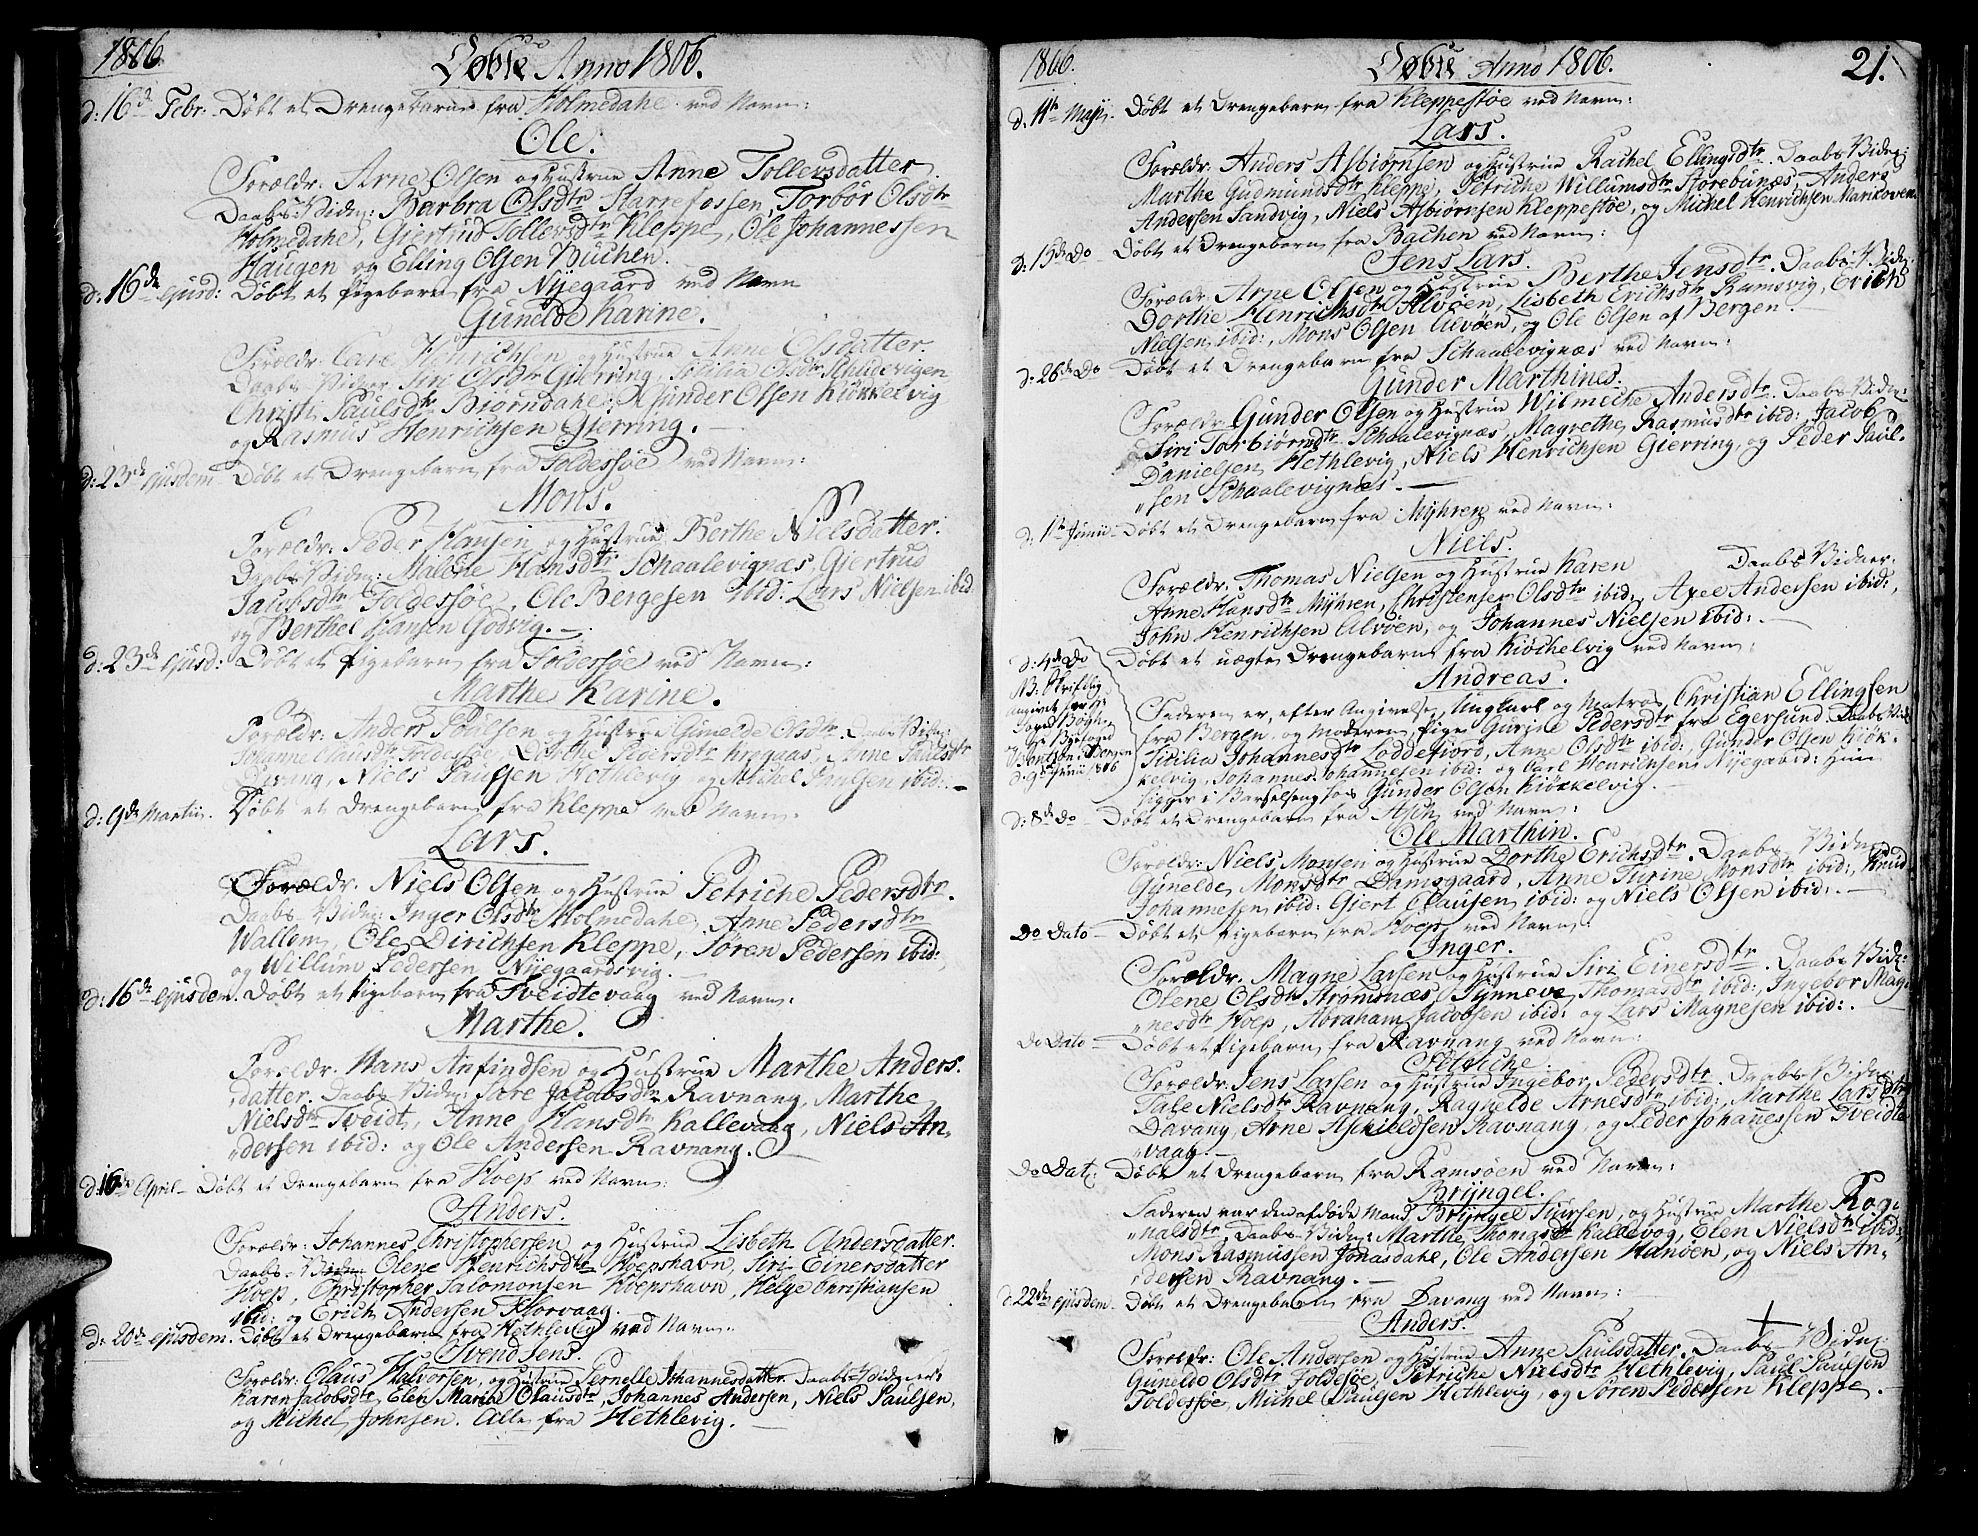 1806. Døbte Anno 1806.
d: 16de Febr. Døbt et Drengebarn fra Holmedahl ved Navn:
Ole.
Forældr. Arne Olsen og Hustrue Anne Tollevsdatter.
Daabs Vidn: Barbra Olsdtr Storrefossen, Torbør Olsdtr
Holmedahl, Giertrud Tollevsdtr Kleppe, Ole Johannessen
Haugen og Elling Olsen Büchen.
d: 16de ejusd: Døbt et Pigebarn fra Nijegaard ved Navn
Gunelde Karine.
Forældr. Carl Henrichsen og Hustrue Anne Olsdatter.
Daabs Vidner Siri Olsdtr Gierring, Olsdtr
Christi Paulsdtr Biørndahl, Gunder Olsen Kiøkkelvig
og Rasmus Henrichsen Gierring.
d: 23de ejusdem Døbt et Drengebarn fra Foldessøe ved Navn:
Mons.
Forældr: Peder Hansen og Hustrue Berthe Nielsdatter.
Daabs Vidn: Malene Hansdtr Schaalevignæs, Giertrud
Jacobsdtr Foldessøe, Ole Bergesen ibid: Lars Nielsen ibid
og Berthel Hansen Godvig.
d: 23de ejusd: Døbt et Pigebarn fra Foldessøe ved Navn:
Marthe Karine.
Forældr: Anders Poulsen og Hustrue Gunelde Olsdtr. Daabs Vidn:
Johanne Clausdtr Foldessøe, Dorthe Pedersdtr, Anne Paulsdtr
Davang, Niels Paulsen Hethlevig og Michel Paulsen ibid:
d: 9de Martii. Døbt et Drengebarn fra Kleppe ved Navn.
Lars.
Forældr. Niels Olsen og Hustrue Petriche Pedersdtr.
Daabs Vidn: Inger Olsdtr Holmedahl, Anne Pedersdtr
Wallem, Ole Dirichsen Kleppe, Søren Pedersen ibid:,
og Willum Pedersen Nijegaardsvig.
d: 16de ejusdem. Døbt et Pigebarn fra Tveidtevaag ved Navn:
Marthe.
Forældr. Hans Anfindsen og Hustrue Marthe Anders.
"datter. Daabs Vidn: Sare Jacobsdtr Ravnang, Marthe
Nielsdtr Tveidt, Anne Hansdtr Kallevaag, Niels An-
"dersen ibid: og Ole Andersen Ravnang.
d: 16de April Døbt et Drengebarn fra Hoep ved Navn:
Anders.
Forældr: Johannes Christophersen og Hustrue Lisbeth Andersdatter.
Daabs Vidn: Olene Henrichsdtr Hoepshavn, Siri Einersdatter
Hoep, Christopher Salomonsen Hoepshavn, Helge Christiansen
ibid: og Erich Andersen Florvaag.
d: 20de ejusdem. Døbt et Drengebarn fra Hethlevig ved Navn:
Svend Jens.
Forældr: Claus Halvorsen, og Hustrue Pernelle Johannesdatter. Daabs Vidner:
Karen Jacobsdtr, Elen Marthe Clausdtr, Johannes Andersen, Niels Paulsen,
og Michel Johnsen. Alle fra Hethlevig.
1806. Døbte Anno 1806. 21.
d. 11te Maji. Døbt et Drengebarn fra Kleppestøe ved Navn:
Lars.
Forældr. Anders Asbiørnsen og Hustrue Rachel Ellingsdtr. Daabs Vidn:
Marthe Gudmundsdtr Kleppe, Petriche Willumsdtr Storebunæs, Anders
Andersen Sandvig, Niels Asbiørnsen Kleppestøe, og Michel Henrichsen Marikoven.
d: 15de Do Døbt et Drengebarn fra Bachen ved Navn:
Jens Lars.
Forældr. Arne Olsen og Hustrue Berthe Jensdtr. Daabs Vidn:
Dorthe Henrichsdtr Alvøen, Lisbeth Erichsdtr Ramsvig, Erich
Nielsen ibid:, Mons Olsen Alvøen, og Ole Olsen af Bergen.
d: 26de Do Døbt et Drengebarn fra Schaalevignæs ved Navn:
Gunder Marthines.
Forældr. Gunder Olsen og Hustrue Wilmeche Andersdtr. Daabs Vidn:
Siri Torbiørnsdtr Schaalevignæs, Magrethe Rasmusdtr ibid: Jacob
Danielsen Hethlevig, Niels Henrichsen Gierring, og Peder Paul-
"sen Schaalevignæs.
d. 1te Junii Døbt et Drengebarn fra Mijhren ved Navn:
Niels.
Forældr. Thomas Nielsen og Hustrue Karen Daabs Vidner.
Anne Hansdtr Mijhren, Christense Olsdtr ibid, Axel Andersen ibid:,
John Henrichsen Alvøen, og Johannes Nielsen ibid:
d: 4de Do Døbt et uægte Drengebarn fra Kiøckelvig ved Navn:
Andreas.
NB: Skriftlig
angivet for
Foged
og By Foged
i Bergen
d. 9de Junii 1806
Faderen er, efter Angivelse, Ungkarl og Matros Christian Ellingsen
fra Bergen, og Moderen Pige Gurjile Pedersdtr fra Egersund. Daabs Vid:
Sicilia Johannesdtr Loddefiord, Anne Olsdtr ibid:, Gunder Olsen Kiøk-
kelvig, Johannes Johannesen ibid: og Carl Henrichsen Nijegaard: Hun
ligger i Barselseng hos Gunder Olsen Kiøkkelvig.
d: 8de do Døbt et Drengebarn fra Ask ved Navn:
Ole Marthin.
Forældr: Niels Monsen og Hustrue Dorthe Erichsdtr. Daabs Vidn:
Gunelde Monsdtr Damsgaard, Anne Turine Monsdtr ibid:, Knud
Johannesen ibid: Giert Clausen ibid: og Niels Olsen ibid:
Do Dato Døbt et Pigebarn fra Hoep ved Navn:
Inger.
Forældr. Magne Larsen og Hustrue Siri Einersdtr. Daabs Vidn:
Olene Olsdtr Strømsnæs, Synneve Thomasdtr ibid:, Ingebor Mag-
"nesdtr Hoep, Abraham Jacobsen ibid: og Lars Magnesen ibid:
Do Dato Døbt et Pigebarn fra Ravnang ved Navn:
Petriche.
Forældr. Jens Larsen og Hustrue Ingebor Pedersdtr. Daabs Vidn:
Tale Nielsdtr Ravnang, Raghelde Arnesdtr ibid:, Marthe Larsdtr
Davang, Arne Aschieldsen Ravnang, og Peder Johannessen Tveidte
"vaag.
Do Dat: Døbt et Drengebarn fra Ramsøen ved Navn:
Brijngel.
Faderen var den afdøde Mand Brijngel Siursen, og Hustrue Marthe Rog-
"nalsdtr, Daabs Vidn: Marthe Thomasdtr Kallevog, Elen Nielsdtr ibid:,
Mons Rasmussen Jonasdahl, Ole Andersen Hanøen, og Niels An-
"dersen Ravnang.
d. 22de ejusdem Døbt et Drengebarn fra Davang ved Navn:
Anders.
Forældr: Ole Andersen og Hustrue Anne Paulsdatter. Daabs Vidn:
Gunelde Olsdtr Foldessøe, Petriche Nielsdtr Hethlevig, Paul Paulsen
Foldessøe, Michel Paulsen Hethlevig, og Søren Pedersen Kleppe.